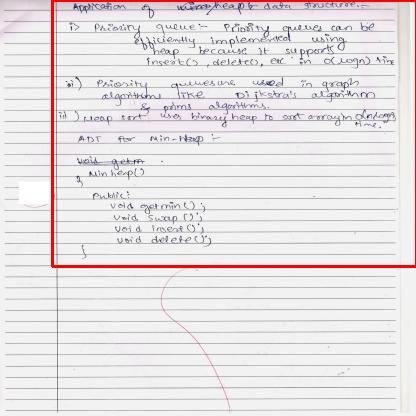 Application of heap data structure:-
i) Priority queue:- Priority queues can be
efficiently implemented using
heap because it supports
insert(), delete(), etc in O(logn) time
ii) Priority queues are used in graph
algorithms like Dijkstra's algorithm
& prims algorithms.
iii) Heap sort uses binary heap to sort array in O(nlogn)
time.
ADT for Min-Heap :-
void getm
Minheap()
{
Public:
void getmin();
void swap();
void insert();
void delete();
}